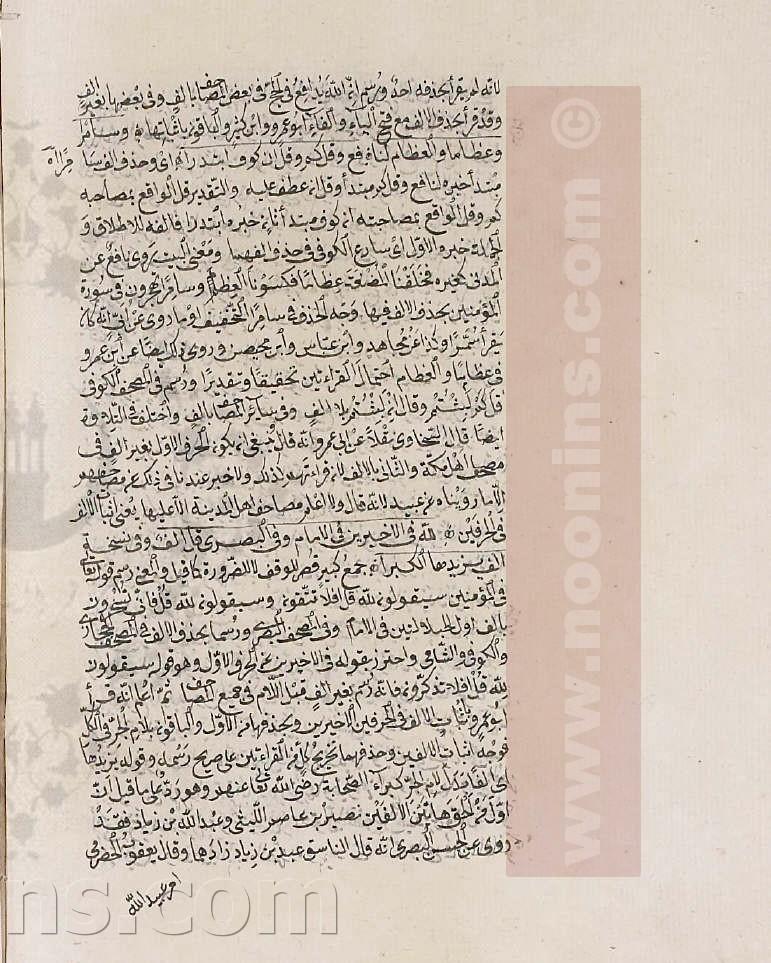 لانه لم يقرأ بحذفه احد ورسم ان الله يدافع في الحج في بعض المصاحف بالف وفي بعضها بغير الف
وقد قرأ بحذف الالف مع فتح الياء والفاء ابو عمرو وابن كثير والباقون باثباتها وسامرا
وعظاما والعظام لنافع وقل كم وقل ان كوف ابتدرا اي وحذف الف سا
مرا
مبتدأ خبره لنافع وقل كم مبتدأ وقل ان عطف عليه والتقدير قل الواقع بمصاحبه
كم وقل الواقع بمصاحبته ان كوف مبتدأ ثان خبره ابتدرا فالفه للاطلاق و
الجملة خبره الاول اي سارع الكوفي في حذف الفهما ومعنى البيت يروي نافع عن
المدني كغيره فخلقنا المضغة عظاما فكسونا العظام وسامرا تهجرون في سورة
المؤمنين بحذف الالف فيها وجه الحذف في سامرا التخفيف او ما روي عن ابي انه كان
يقرأ سمرا وكذا عن مجاهد وابن عباس وابن محيصن وروي ذلك ايضا عن ابي عمرو
في عظاما والعظام احتمال القراءتين تحقيقا وتقديرا ورسم في المصحف الكوفي
قل كم لبثتم وقل ان لبثتم بلا الف وفي سائر المصاحف بالف واختلف في التلاوة
ايضا قال السخاوي نقلا عن ابي عمرو انه قال ينبغي ان يكون الحرف الاول بغير الف في
مصحف اهل مكة والثاني بالالف لان قراءتهم كذلك ولا خبر عندنا في ذلك عن مصاحفهم
الا ما رويناه عن ابي عبيد لانه قال ولا اعلم مصاحف اهل المدينة الا عليها يعني اثبات الالف
في الحرفين لله في الاخيرين في الامام وفي البصري قل الف وفي نسخة
الف يزيدها الكبرا جمع كبير قصر للوقف لا للضرورة كما قيل والمعنى رسم قوله تعالى
في المؤمنين سيقولون لله قل افلا تتقون وسيقولون لله قل فانى تسحرون
بالف اول الجلالتين في الامام وفي المصحف البصري ورسما بحذف الالف في المصحف الحجازي
والكوفي والشامي واحترز بقوله في الاخيرين عن الحرف الاول وهو قوله سيقولون
لله قل افلا تذكرون فانه رسم بغير الف قبل اللام في جميع المصاحف ثم اعلم انه قرأ
ابو عمرو باثبات الالف في الحرفين الاخيرين وبحذفها من الاول والباقون بلام الجر في الكل
فوجه اثبات الالفين وحذفهما تخريج كل من القراءتين على صريح رسمه وقوله يزيدها
اي الفا بدل لام الجر كبراء الصحابة رضي الله تعالى عنهم وهو رد على ما قيل ان
اول من الحق هاتين الالفين نصير بن عاصم الليثي وعبد الله بن زياد فقد
روي عن الحسن البصري انه قال الفاسق عبيد بن زياد زادهما وقال يعقوب الحضرمي
امر عبيد الله
© www.noonins.com
ns.com